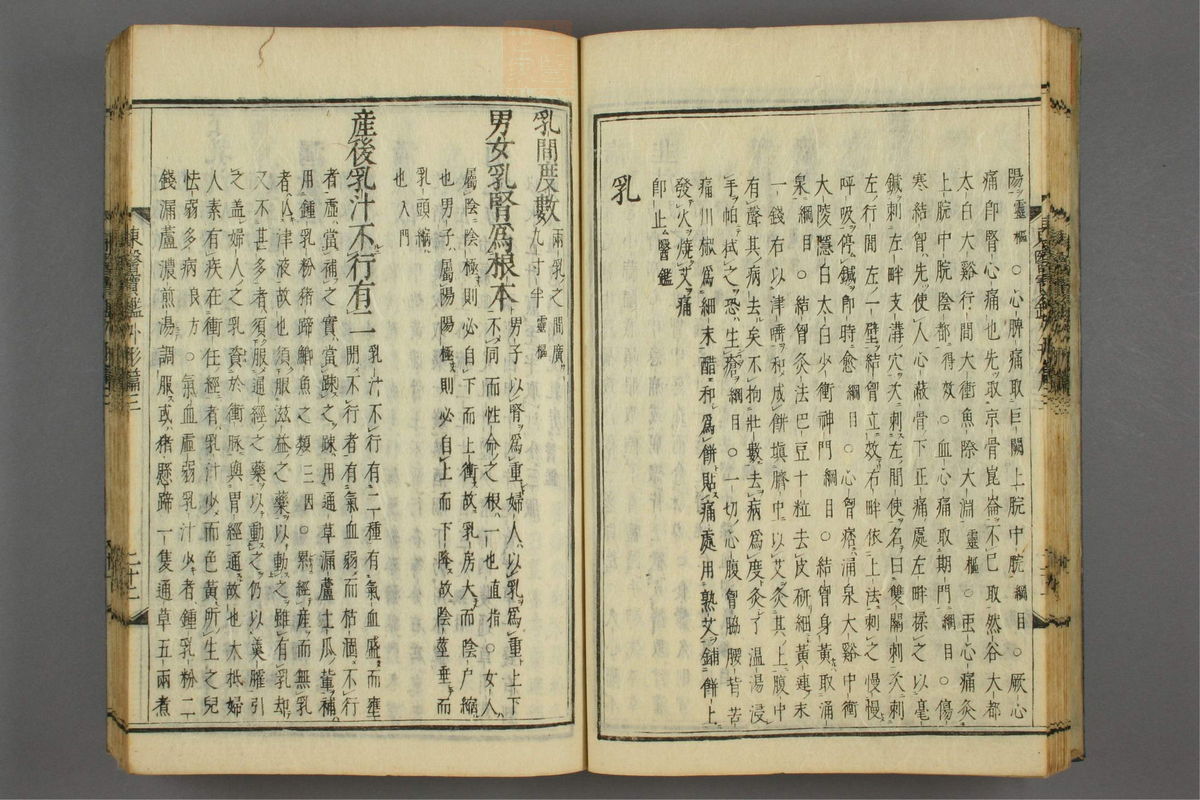 陽靈樞○心脾痛取巨闕上脘中脘綱目○厥心
痛卽腎心痛也先取京骨崑崙不已取然谷大都
太白大谿行間大衝魚際大淵靈樞○亞心痛灸
上脘中脘陰都得效○血心痛取期門綱目○傷
寒結胷先使人心蔽骨下正痛處左畔揉之以毫
鍼刺左畔支溝穴次刺左間使名曰雙關刺次刺
左行間左一壁結胷立效右畔依上法刺之慢慢
呼吸停鍼卽時愈綱目○心胷痞涌泉大谿中衝
大陵隱白太白少衝神門綱目○結胷身黃取涌
泉綱目○結胷灸法巴豆十粒去皮硏細黃連末
一錢右以津唾和成餠塡臍中以艾灸其上腹中
有聲其病去矣不拘壯數去病爲度灸了溫湯浸
手帕拭之恐生瘡綱目○一切心腹胷脇腰背苦
痛川椒爲細末醋和爲餠貼痛處用熟艾鋪餠上
發火燒艾痛
卽止醫鑑
乳
乳間度數兩乳之間廣九寸半靈樞
男女乳腎爲根本男子以腎爲重婦人以乳爲重上下
不同而性命之根一也直指○女人
屬陰陰極則必自下而上衝故乳房大而陰戶縮
也男子屬陽陽極則必自上而下降故陰莖垂而
乳頭縮
也入門
產後乳汁不行有二乳汁不行有二種有氣血盛而壅
閉不行者有氣血弱而枯涸不行
者虛當補之實當踈之踈用通草漏蘆土瓜輩補
用鍾乳粉猪蹄鯽魚之類三因○累經產而無乳
者亡津液故也須服滋益之藥以動之雖有乳却
又不甚多者須服通經之藥以動之仍以羹臛引
之盖婦人之乳資於衝脉與胃經通故也大抵婦
人素有疾在衝任經者乳汁少而色黃所生之兒
怯弱多病良方○氣血虛弱乳汁少者鍾乳粉二
錢漏蘆濃煎湯調服或猪懸蹄一隻通草五兩煮
東醫寶鑑外形篇三
二十二